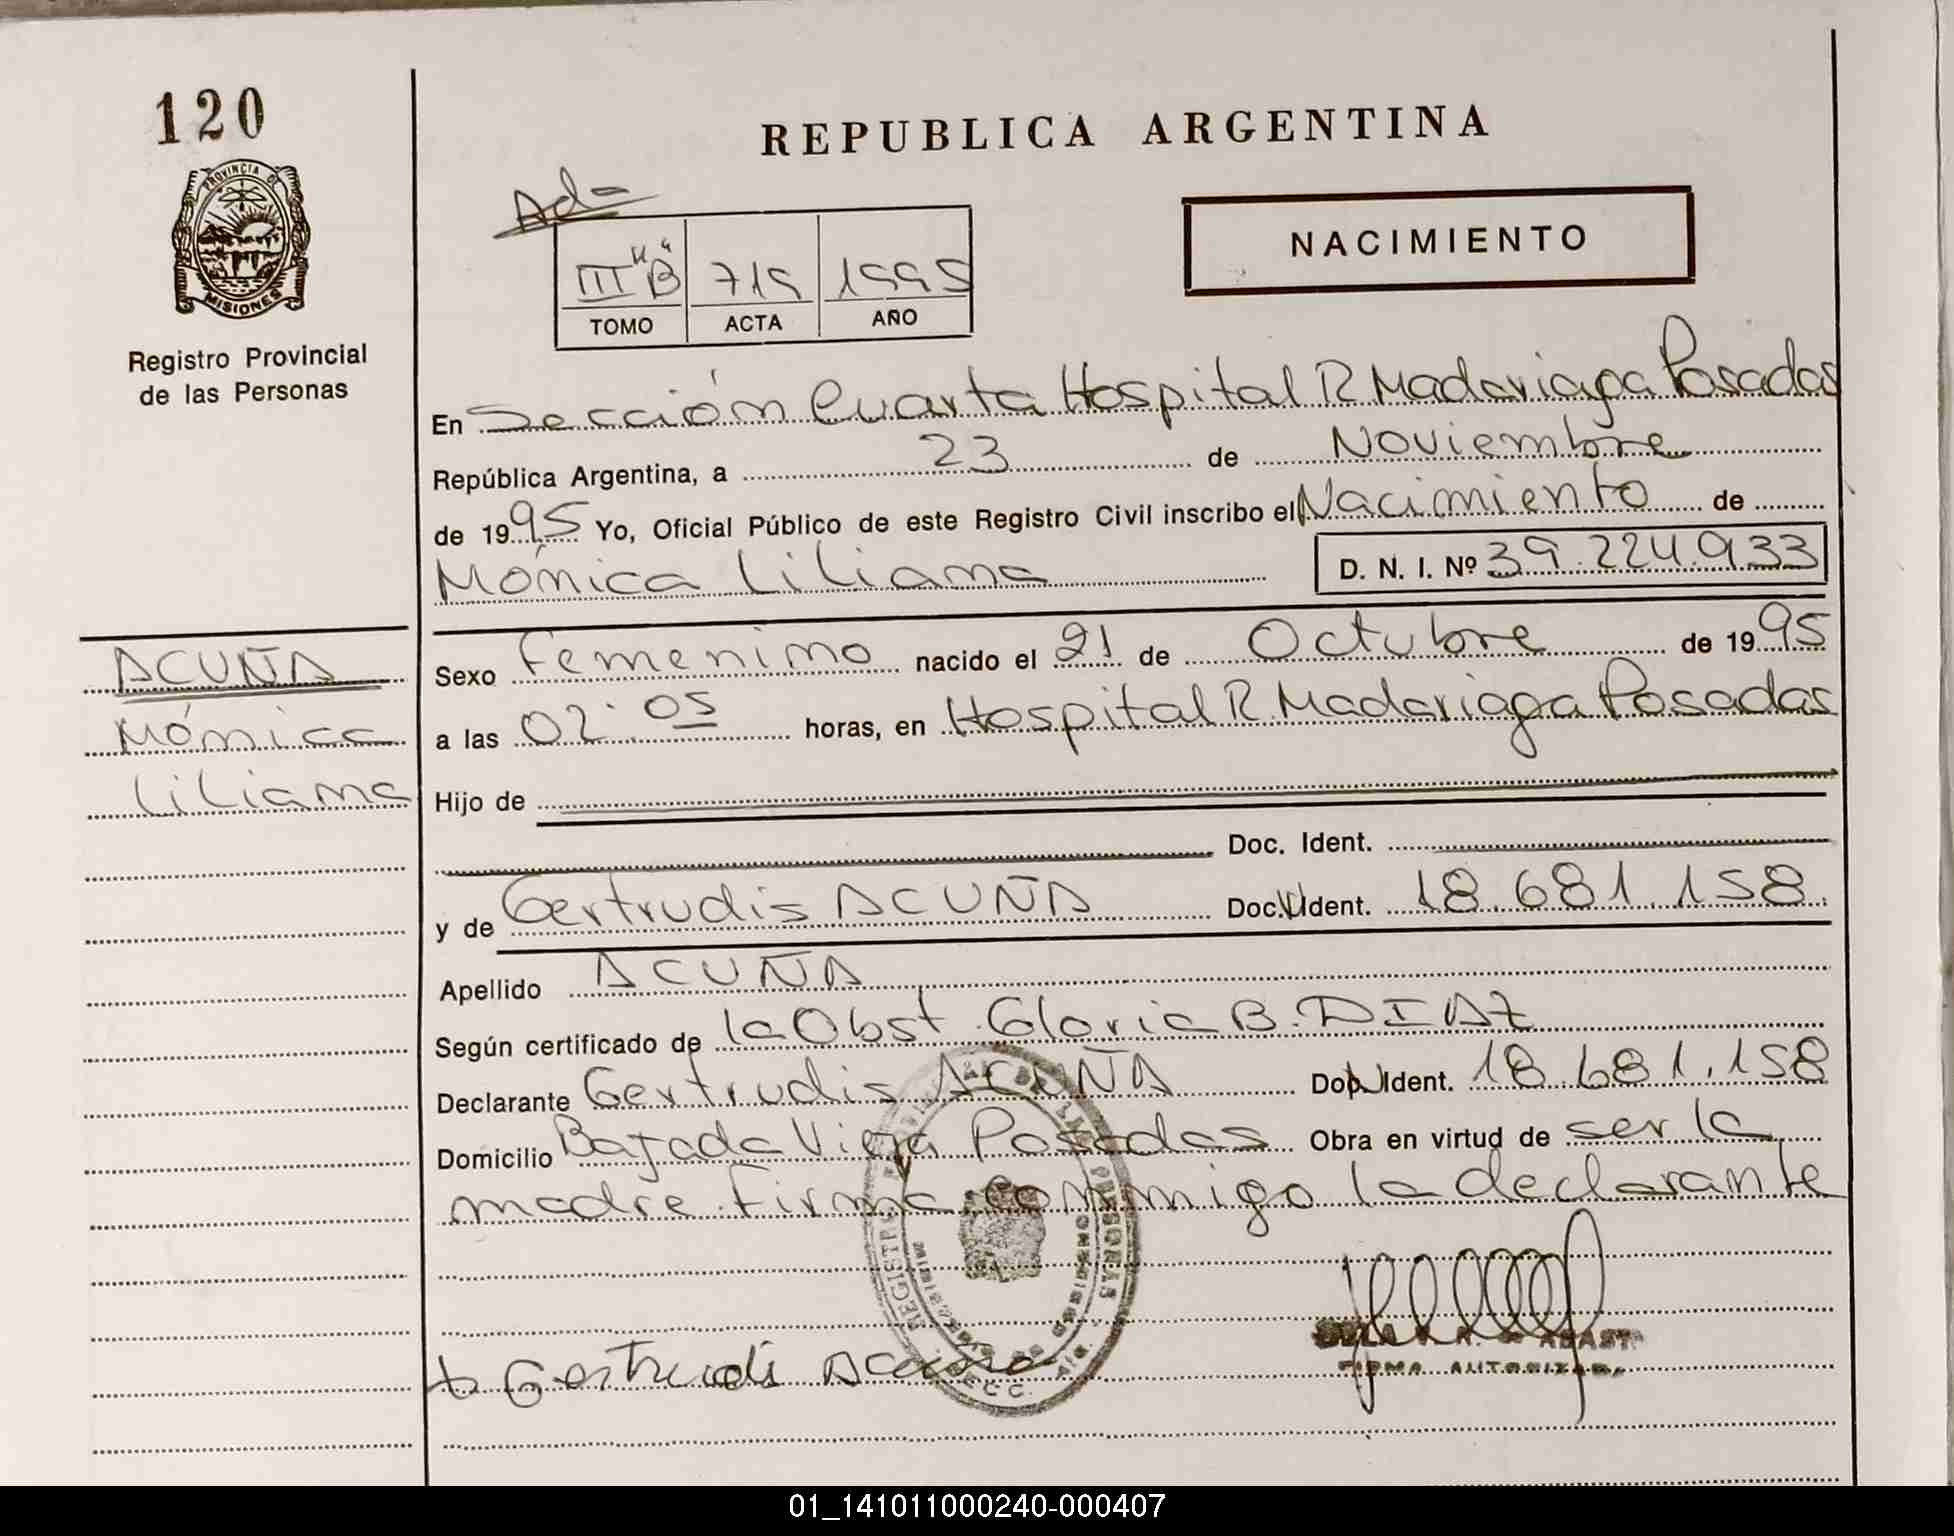 120
PROVINCIA DE
MISIONES
Registro Provincial
de las Personas
REPUBLICA ARGENTINA
NACIMIENTO
III "B" 719 1995
TOMO ACTA AÑO
En Sección Cuarta Hospital R Madariaga Posadas
República Argentina, a 23 de Noviembre
de 1995 Yo, Oficial Público de este Registro Civil inscribo el Nacimiento de
Mónica Liliana D. N. I. Nº 39.224.933
ACUÑA
Mónica
Liliana
Sexo Femenino nacido el 21 de Octubre de 1995
a las 02:05 horas, en Hospital R. Madariaga Posadas
Hijo de
Doc. Ident.
y de Gertrudis ACUÑA Doc. Ident. 18.681.158
Apellido ACUÑA
Según certificado de la Obst. Gloria B. DIAZ
Declarante Gertrudis ACUÑA Doc. Ident. 18.681.158
Domicilio Bajada Vieja Posadas Obra en virtud de ser la
madre. Firma conmigo la declarante
Gertrudi Acuña
FIRMA AUTORIZADA
01_141011000240-000407